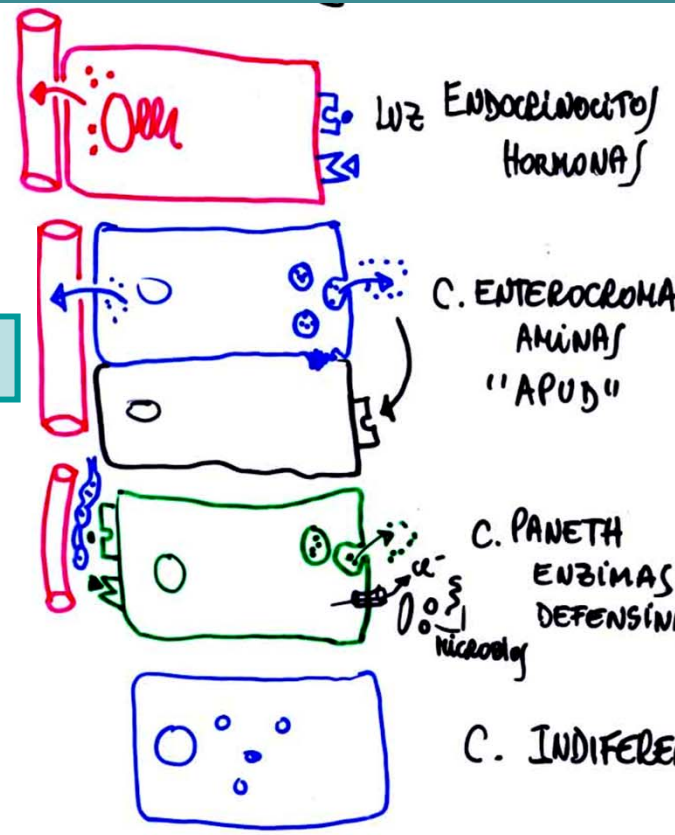 LUZ ENDOCRINOCITOS
HORMONAS
C. ENTEROCROMA
AMINAS
"APUD"
C. PANETH
ENZIMAS
DEFENSIN
Cl-
microbios
C. INDIFERE